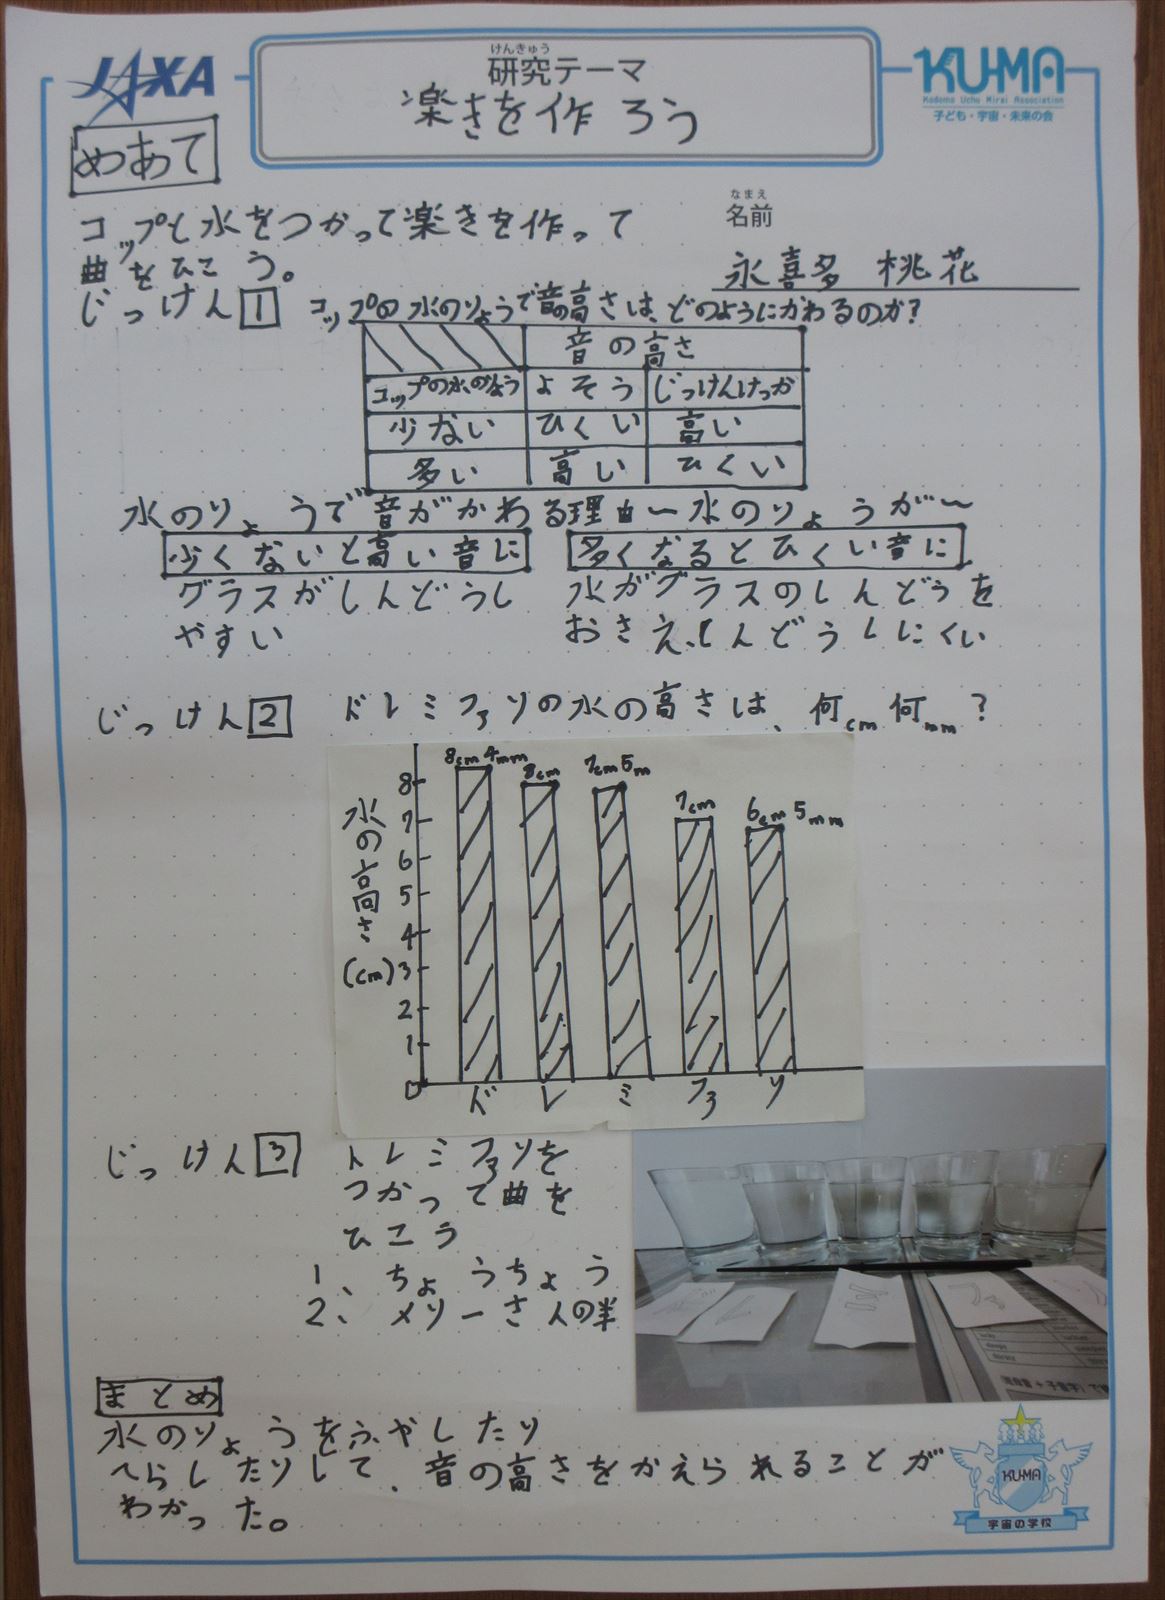 JAXA
けんきゅう
研究テーマ
楽きを作ろう
KU-MA
Kodomo Uchu Mirai Association
子ども・宇宙・未来の会
めあて
なまえ
名前
永喜多 桃花
コップと水をつかって楽きを作って
曲をひこう。
じっけん1 コップの水のりょうで音の高さは、どのようにかわるのか?
音の高さ
コップの水のりょう よそう じっけんけっか
少ない ひくい 高い
多い 高い ひくい
水のりょうで音がかわる理由〜水のりょうが〜
少くないと高い音に 多くなるとひくい音に
グラスがしんどうし 水がグラスのしんどうを
やすい おさえ、しんどうしにくい
じっけん2 ドレミファソの水の高さは、何cm何mm?
8cm4mm 8cm 7cm5m 7cm 6cm5mm
水の高さ
(cm)
8
7
6
5
4
3
2
1
0
ド レ ミ ファ ソ
じっけん3 ドレミファソを
つかって曲を
ひこう
1、ちょうちょう
2、メリーさんの羊
まとめ
水のりょうをふやしたり
へらしたりして、音の高さをかえられることが
わかった。
KU-MA
宇宙の学校